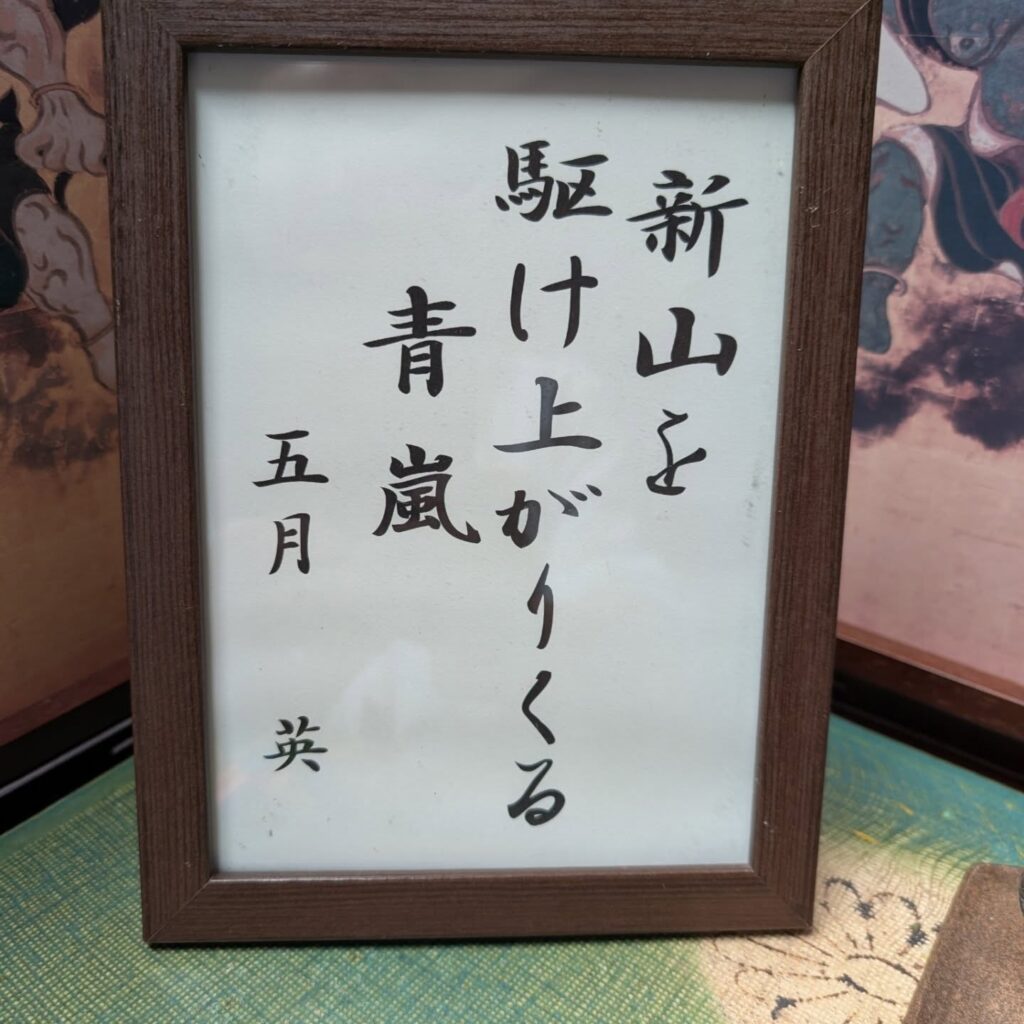 新山を
駆け上がりくる
青嵐
五月 英